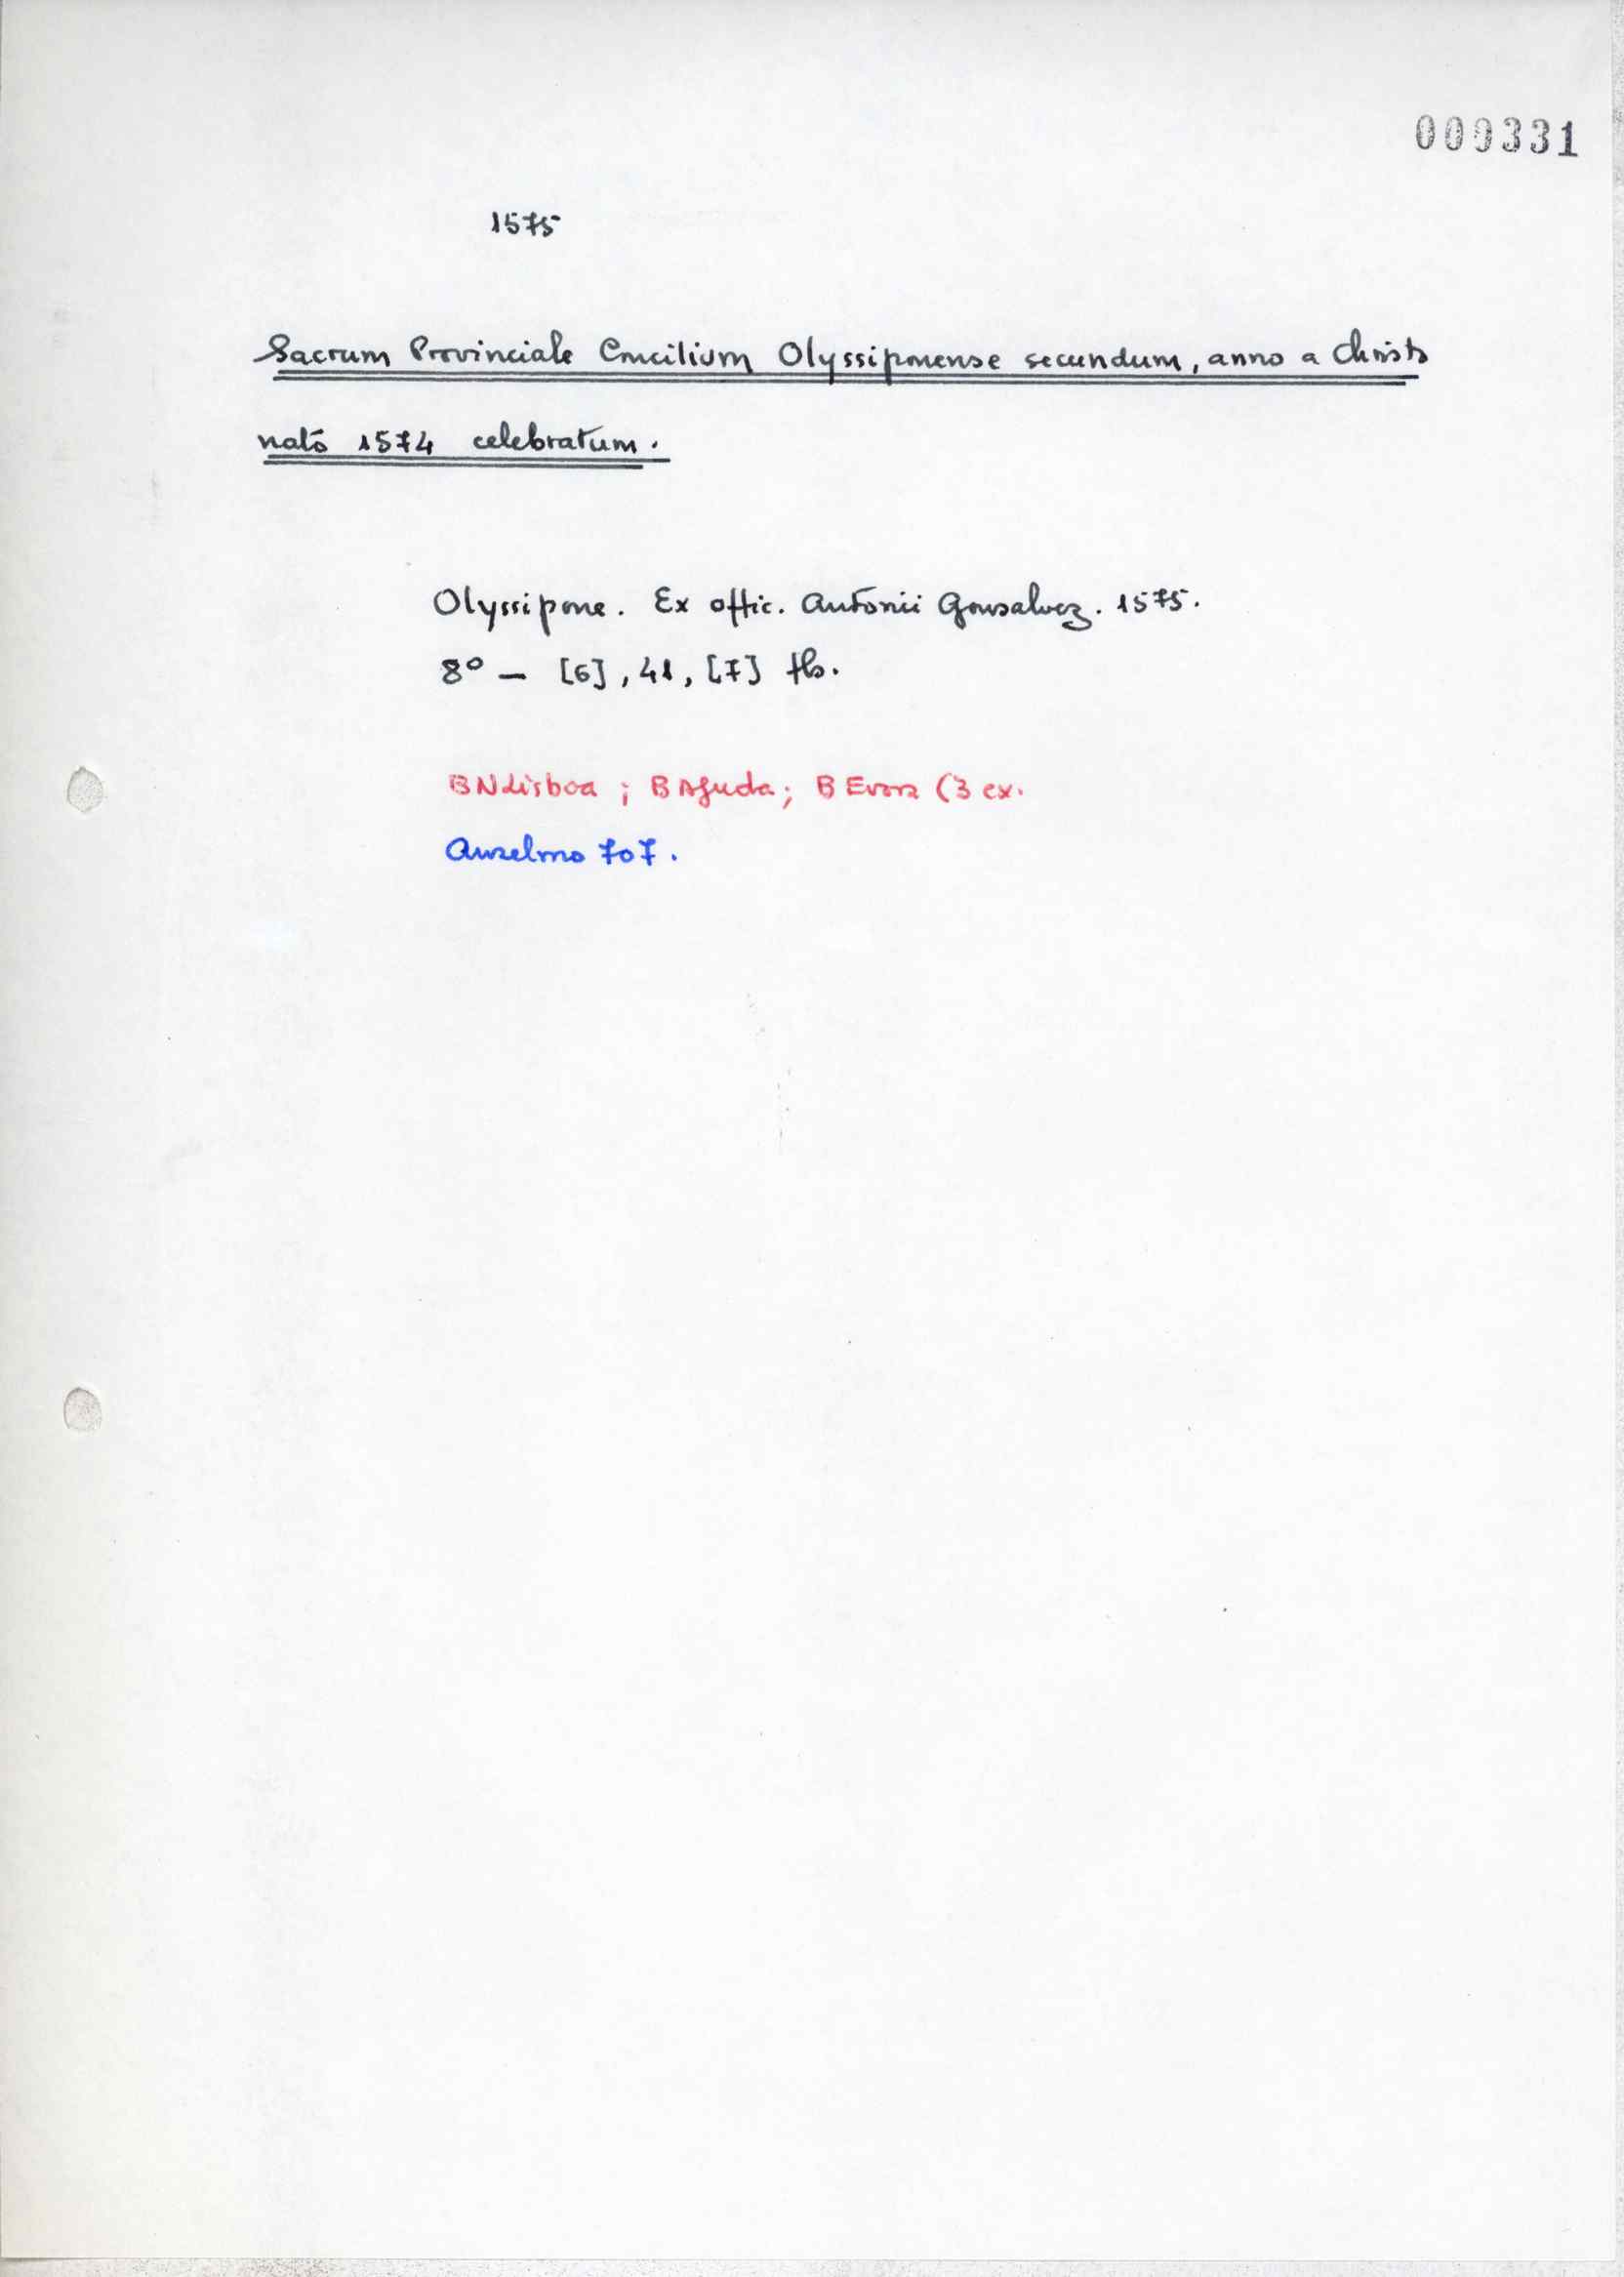 000331
1575
Sacrum Provinciale Concilium Olyssiponense secundum, anno a Christo
nato 1574 celebratum.
Olyssipone. Ex offic. Antonii Gonsalvez. 1575.
8º — [6], 41, [7] fls.
BNLisboa; BAjuda; BEvora (3 ex.
Anselmo 707.